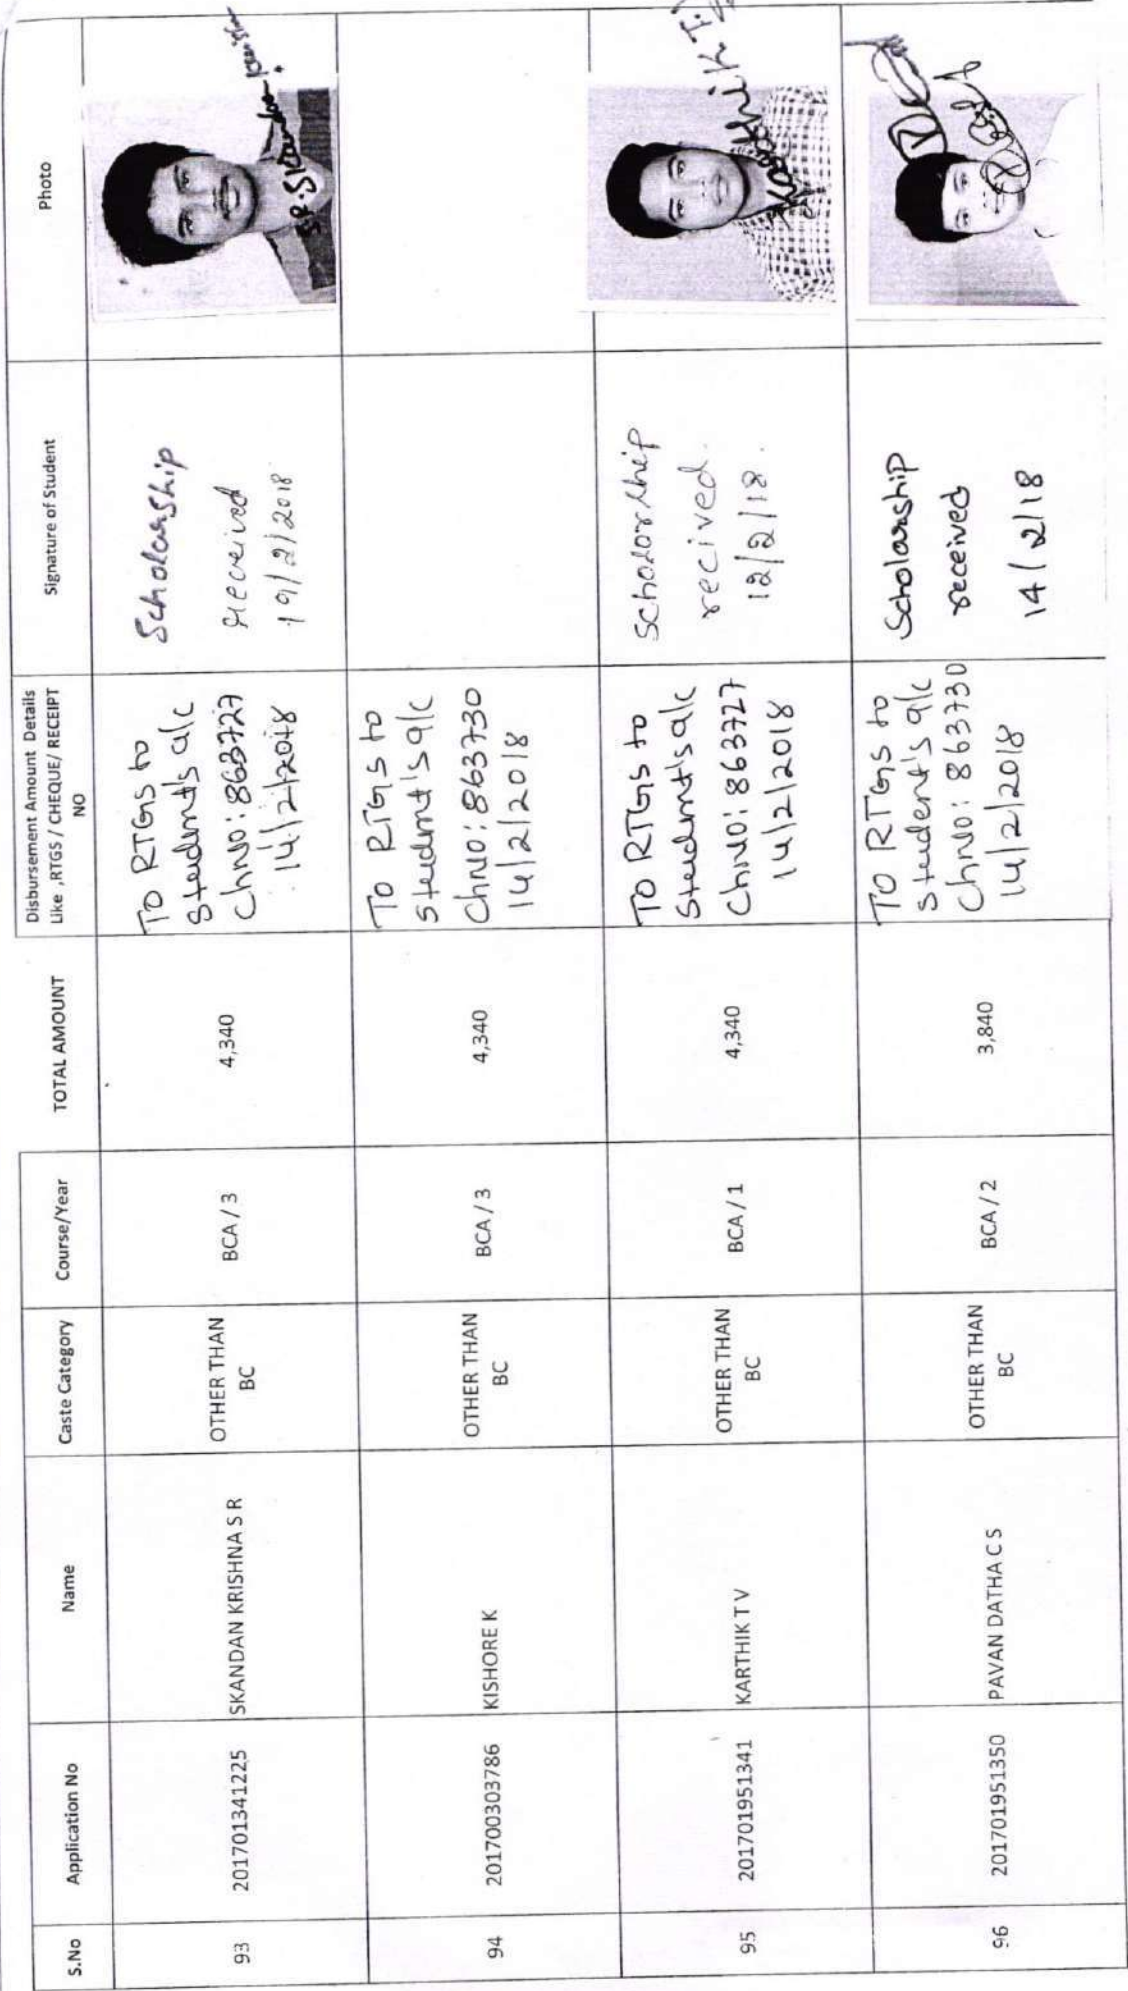 S.No
Application No
Name
Caste Category
Course/Year
TOTAL AMOUNT
Disbursement Amount Details
Like ,RTGS / CHEQUE/ RECEIPT
NO
Signature of Student
Photo
93
201701341225
SKANDAN KRISHNA S R
OTHER THAN
BC
BCA / 3
4,340
To RTGS to
student's a/c
Chno: 863727
14/2/2018
Scholarship
received
19/2/2018
94
201700303786
KISHORE K
OTHER THAN
BC
BCA / 3
4,340
To RTGS to
student's a/c
Chno: 863730
14/2/2018
95
201701951341
KARTHIK T V
OTHER THAN
BC
BCA / 1
4,340
To RTGS to
student's a/c
Chno: 863727
14/2/2018
scholorship
recived.
12/2/18.
Karthik T.V
96
201701951350
PAVAN DATHA C S
OTHER THAN
BC
BCA / 2
3,840
To RTGS to
student's a/c
Chno: 863730
14/2/2018
Scholarship
received
14/2/18